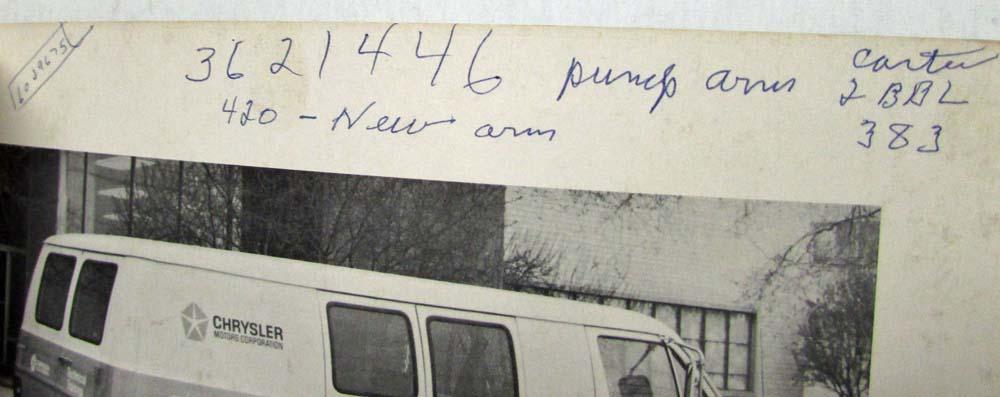 3621446 pump arm
420 - New arm
Carter
2 BBL
383
CHRYSLER
MOTORS CORPORATION